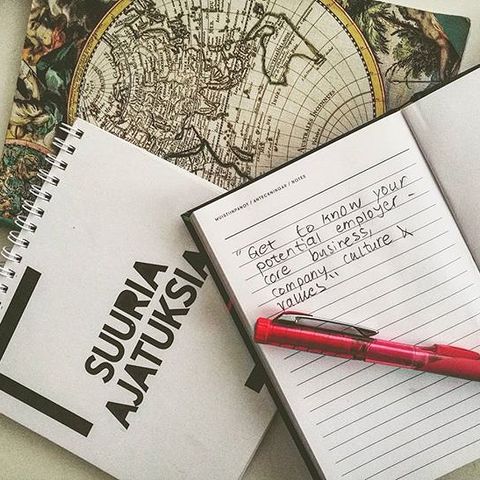 SUURIA
AJATUKSIA
MUISTIINPANOT / ANTECKNINGAR / NOTES
"Get to know your
potential employer -
core business,
company culture &
values"